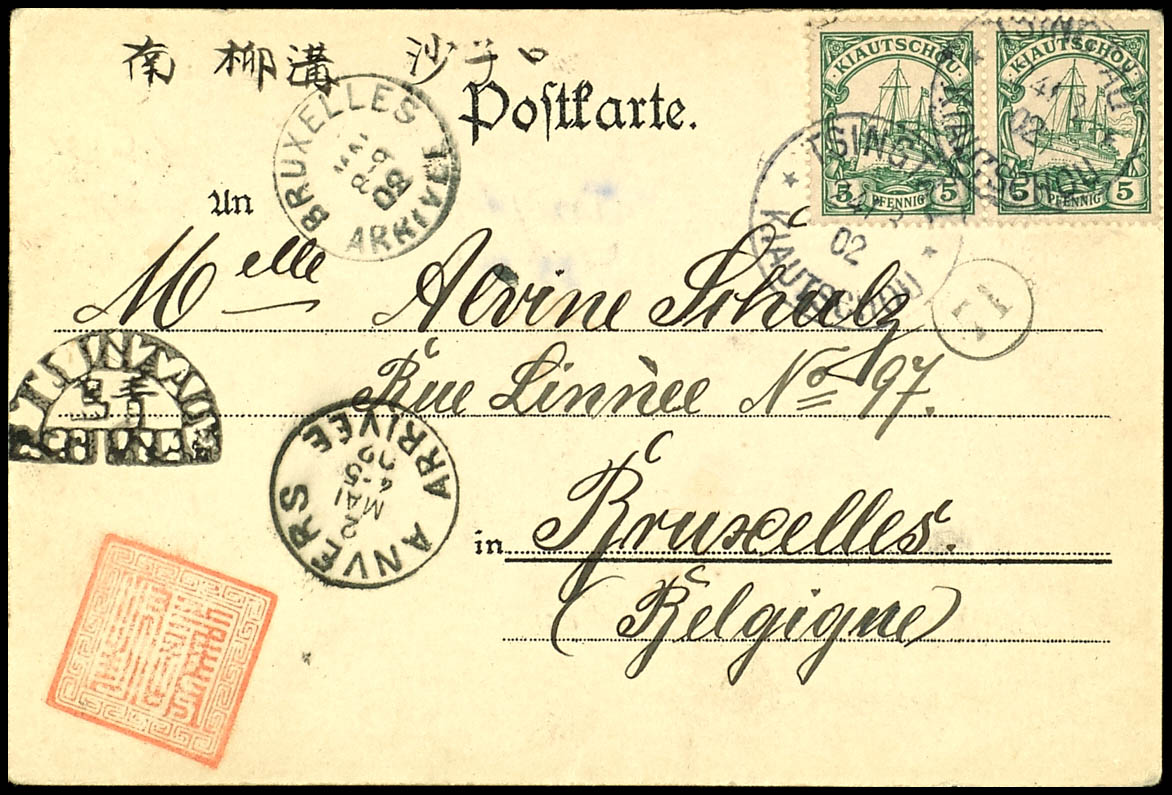 南 柳溝 沙子口
Postkarte.
KIAUTSCHOU KIAUTSCHOU
5 PFENNIG 5 5 PFENNIG 5
TSINGTAU
KIAUTSCHOU
02
TSINGTAU
KIAUTSCHOU
02
BRUXELLES
02
ARRIVÉE
An
Melle Alvine Schulz
71
Rue Linnèe No 97.
TSINTAU
ANVERS
2
MAI
4-5
02
ARRIVÉE
in Bruxelles.
(Belgique)